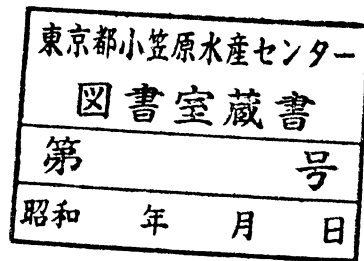 東京都小笠原水産センター
図書室蔵書
第 号
昭和 年 月 日